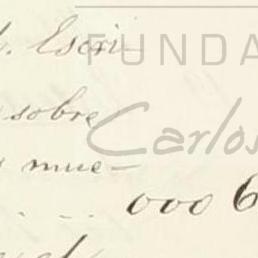 Escri-
FUNDA
sobre
Carlos
mue-
000 6